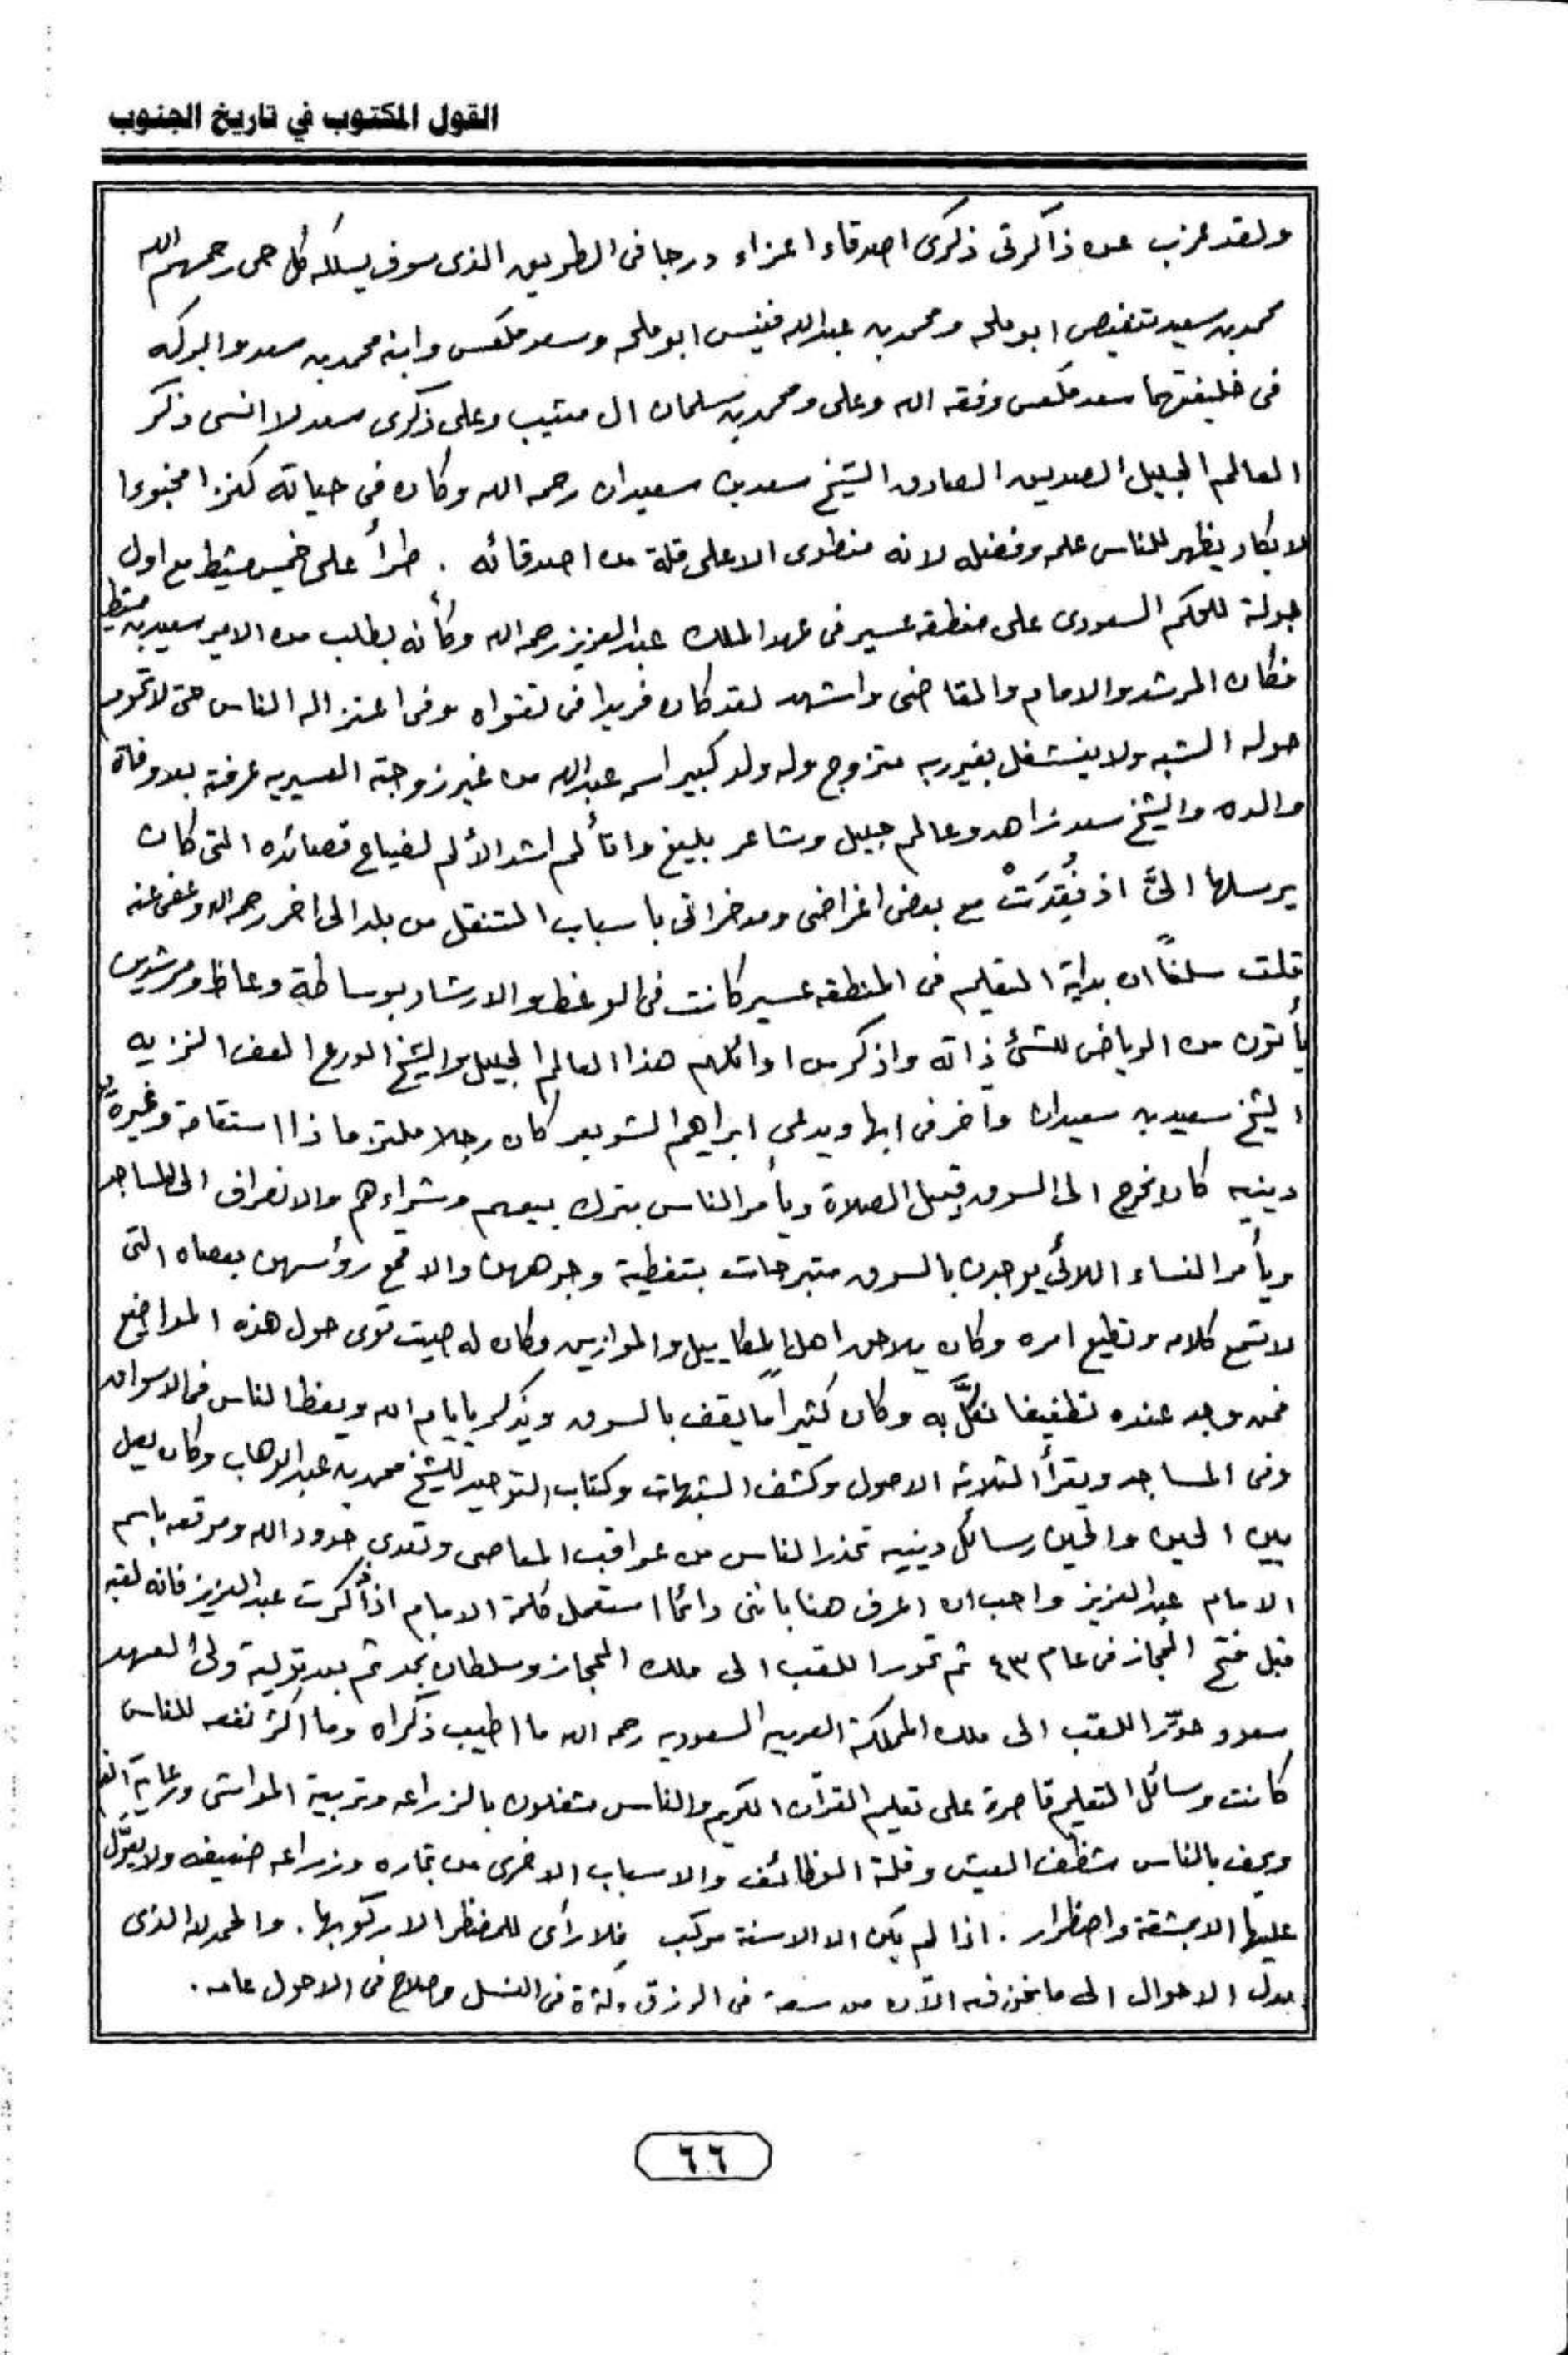 القول المكتوب في تاريخ الجنوب
ولقد عزب عن ذاكرتي ذكرى اصدقاء اعزاء درجا في الطريق الذي سوف يسلكه كل حي رحمهم الله
محمد بن سعيد ابو ملحه ومحمد بن عبدالله ابو ملحه وسعد ملعس وابنه محمد بن سعد والبركه
في خليفتهما سعد ملعس وفقه الله وعلي ومحمد بن سلمان ال متيب وعلى ذكرى سعد لا انسى ذكر
العالم الجليل الصديق الصادق الشيخ سعد بن سعيدان رحمه الله وكان في حياته كنزا مخبوءا
لا يكاد يظهر للناس علمه وفضله لانه منطوى الا على قلة من اصدقائه . طرأ على خميس مشيط مع اول
جولة للحكم السعودى على منطقة عسير في عهد الملك عبدالعزيز رحمه الله وكأنه بطلب من الامير سعيد بن مشيط
فكان المرشد والامام والقاضى واشهد لقد كان فريدا فى تقواه وفى اعتزاله الناس حتى لا تحوم
حوله الشبه ولا ينشغل بغير ربه متزوج وله ولد كبير اسمه عبدالله من غير زوجته العسيريه عرفته بعد وفاة
والده والشيخ سعد زاهد وعالم جليل وشاعر بليغ واتألم اشد الألم لضياع قصائده التى كان
يرسلها الىَّ اذ فُقِدَتْ مع بعض اغراضى ومدخراتى باسباب التنقل من بلد الى اخر رحمه الله وعفى عنه
قلت سلفاً ان بداية التعليم فى المنطقه عسير كانت فى الوعظ والارشاد بوساطة وعاظ ومرشدين
يأتون من الرياض للشئ ذاته واذكر من اوائلهم هذا العالم الجليل والشيخ الورع العف النزيه
الشيخ سعيد بن سعيدان وآخر فى ابها ويدعى ابراهيم الشويعر كان رجلا ملتزما ذا استقامة وغيرة
دينيه كان يخرج الى السوق قبيل الصلاة ويأمر الناس بترك بيعهم وشراءهم والانصراف الى المساجد
ويأمر النساء اللائي يوجدن بالسوق متبرجات بتغطية وجوههن والا قمع رؤسهن بعصاه التى
لا تسمع كلامه وتطيع امره وكان يلاحق اهل المكاييل والموازين وكان له صيت قوى حول هذه المواضيع
فمن وجد عنده تطفيفا نكَّل به وكان كثيراً ما يقف بالسوق ويذكر بايام الله ويعظ الناس فى الاسواق
وفى المساجد ويقرأ الثلاثه الاصول وكشف الشبهات وكتاب التوحيد للشيخ محمد بن عبدالوهاب وكان يصل
بين الحين والحين رسائل دينيه تحذر الناس من عواقب المعاصى وتعدى حدود الله وموقعه باسم
الامام عبدالعزيز واحب ان اعرف هنا باننى دائما استعمل كلمة الامام اذا ذكرت عبدالعزيز فانه لقبه
قبل فتح الحجاز فى عام ٤٣ ثم تحور اللقب الى ملك الحجاز وسلطان نجد ثم بعد تولية ولى العهد
سعود حوّر اللقب الى ملك المملكة العربيه السعوديه رحمه الله ما اطيب ذكراه وما اكثر نفعه للناس
كانت وسائل التعليم قاصرة على تعليم القرآن الكريم والناس مشغلون بالزراعه وتربية المواشى ورعاية
ويحف بالناس شظف العيش وقلة الوظائف والاسباب الاخرى من تجاره وزراعه ضعيفه ولا يعوّل
عليها الا بمشقة واضطرار . اذا لم يكن الا الاسنة مركب فلا رأى للمضطر الا ركوبها . والحمد لله الذى
بدل الاحوال الى ما نحن فيه الآن من سعة فى الرزق وكثرة فى النسل وصلاح فى الاحول عامه .
٦٦